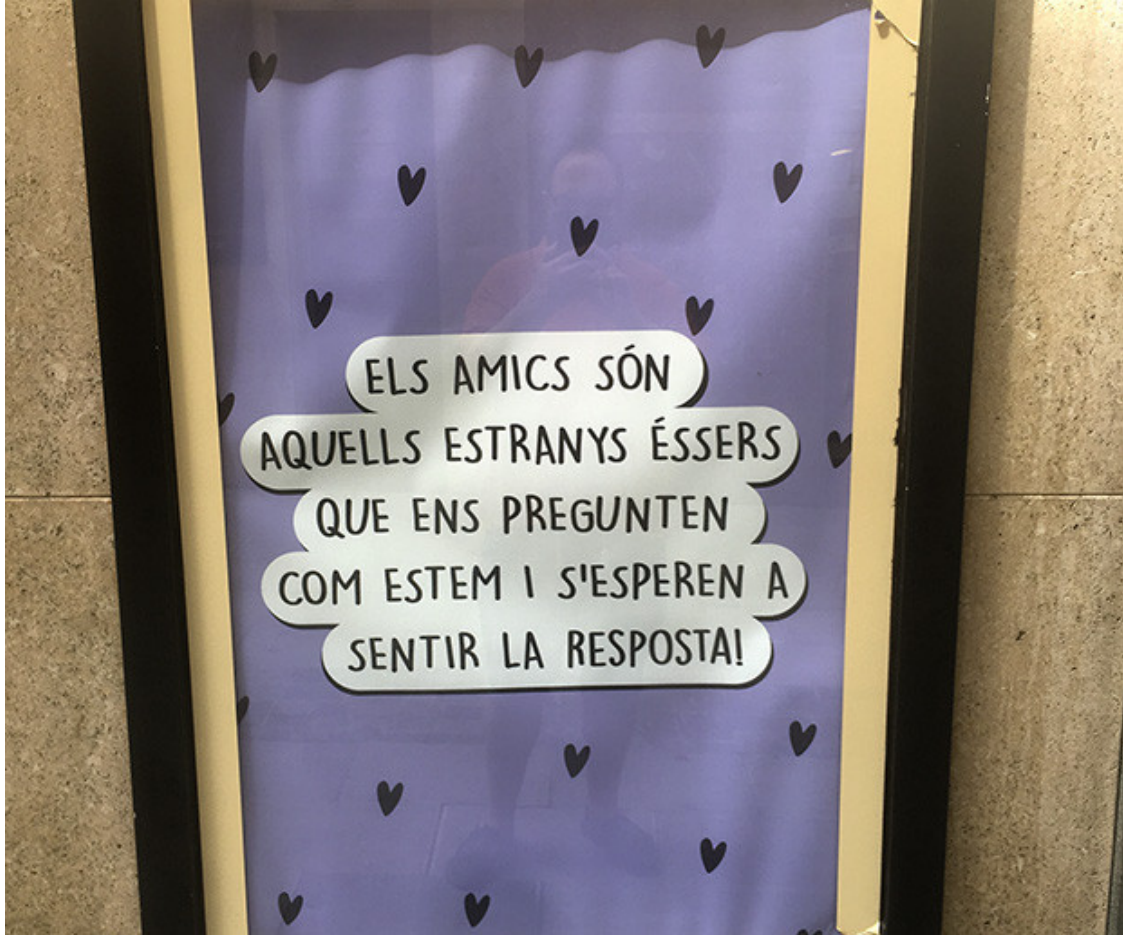 ELS AMICS SÓN
AQUELLS ESTRANYS ÉSSERS
QUE ENS PREGUNTEN
COM ESTEM I S'ESPEREN A
SENTIR LA RESPOSTA!